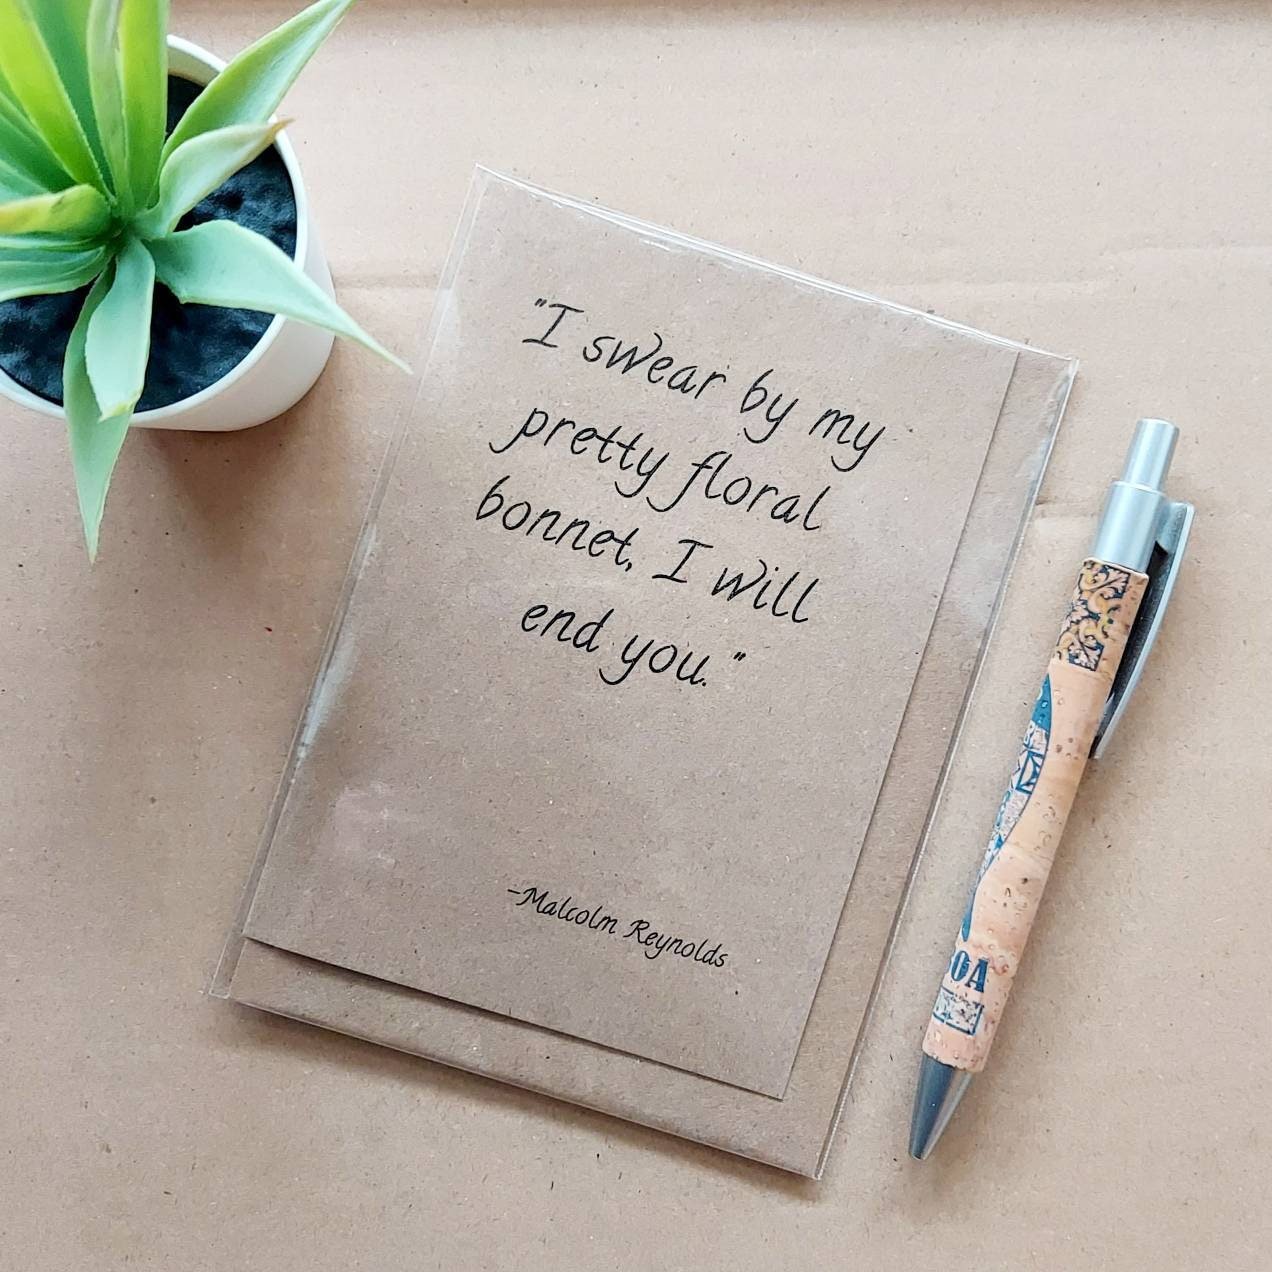 "I swear by my
pretty floral
bonnet, I will
end you."
-Malcolm Reynolds
OA